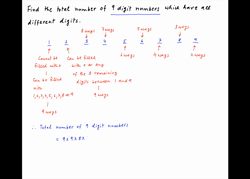 Find the total number of 9 digit numbers which have all
different digits.
9 ways 7 ways 5 ways 3 ways
1 2 3 4 5 6 7 8 9
8 ways 6 ways 4 ways 2 ways
Cannot be filled with 0
Can be filled with 0 or any of the 8 remaining digits between 1 and 9
Can be filled with
1,2,3,4,5,6,7,8 or 9
9 ways
9 ways
∴ Total number of 9 digit numbers
= 9 x 9 x 8 x